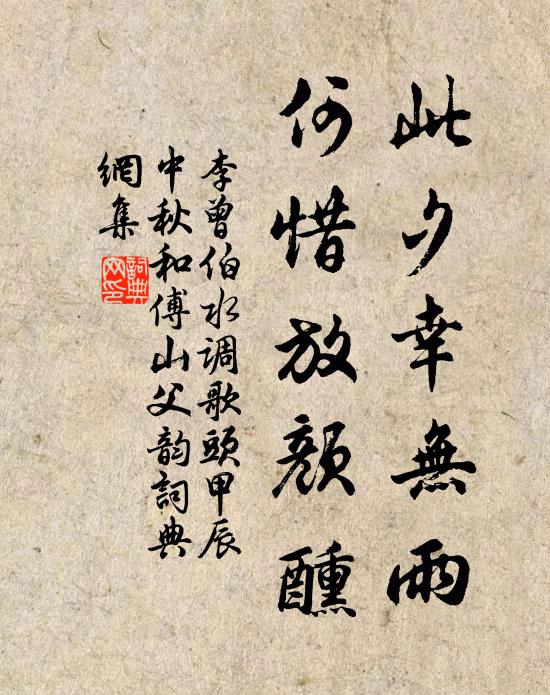 此夕幸無雨
何惜放顏醺
李曾伯水調歌頭甲辰
中秋和傅山父韵詞典
網集
詞典
网印